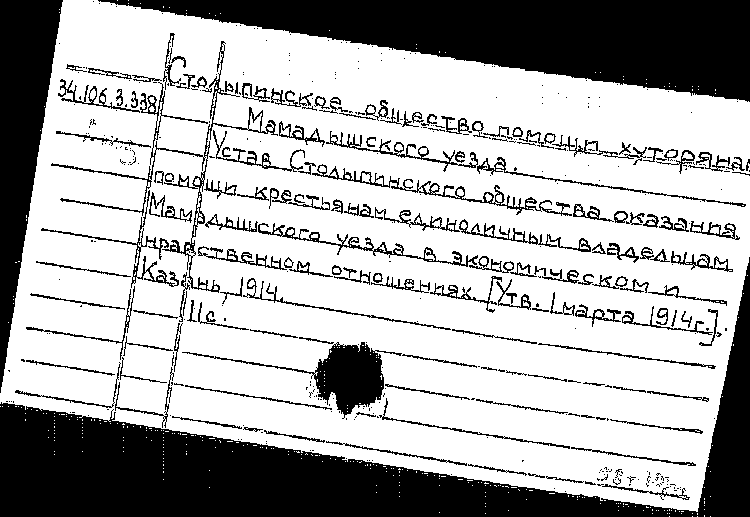 Столыпинское общество помощи хуторянам
34.106.3.338
Мамадышского уезда.
Устав Столыпинского общества оказания
помощи крестьянам единоличным владельцам
Мамадышского уезда в экономическом и
нравственном отношениях. [Утв. 1 марта 1914г.].
Казань, 1914.
11с.